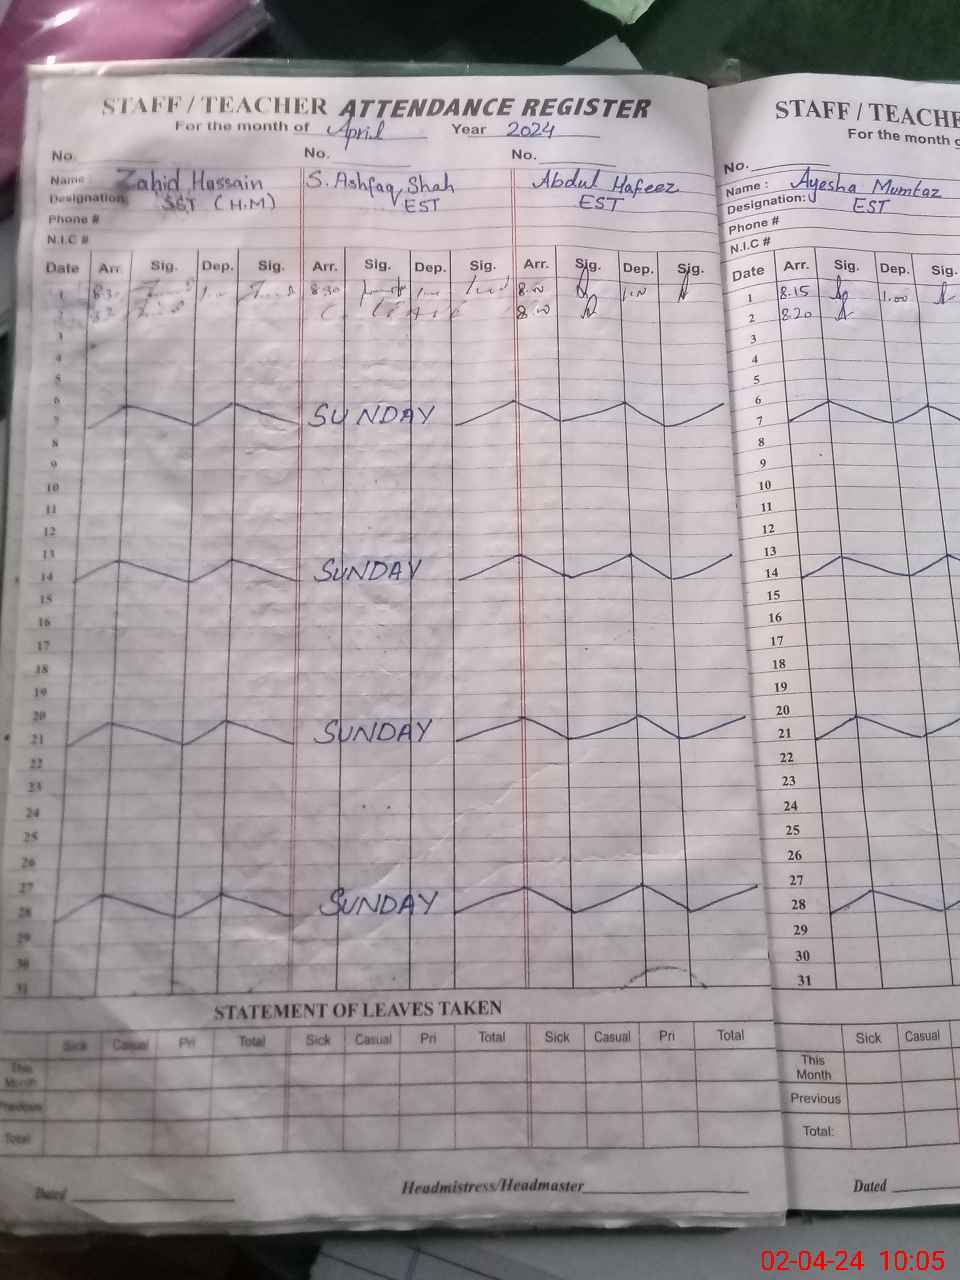 STAFF / TEACHER ATTENDANCE REGISTER
For the month of April Year 2024
No. No. No.
Name : Zahid Hussain S. Ashfaq Shah Abdul Hafeez
Designation: SST (H.M) EST EST
Phone #
N.I.C #
Date Arr. Sig. Dep. Sig. Arr. Sig. Dep. Sig. Arr. Sig. Dep. Sig.
1 8.30 8.00
2 8.00
3
4
5
6
7 SUNDAY
8
9
10
11
12
13
14 SUNDAY
15
16
17
18
19
20
21 SUNDAY
22
23
24
25
26
27
28 SUNDAY
29
30
31
STATEMENT OF LEAVES TAKEN
Sick Casual Pri Total Sick Casual Pri Total Sick Casual Pri Total
This Month
Previous
Total
Dated Headmistress/Headmaster
STAFF / TEACHE
For the month
No.
Name : Ayesha Mumtaz
Designation: EST
Phone #
N.I.C #
Date Arr. Sig. Dep. Sig.
1 8.15 1.00
2 8.20
3
4
5
6
7
8
9
10
11
12
13
14
15
16
17
18
19
20
21
22
23
24
25
26
27
28
29
30
31
Sick Casual
This
Month
Previous
Total:
Dated
02-04-24 10:05